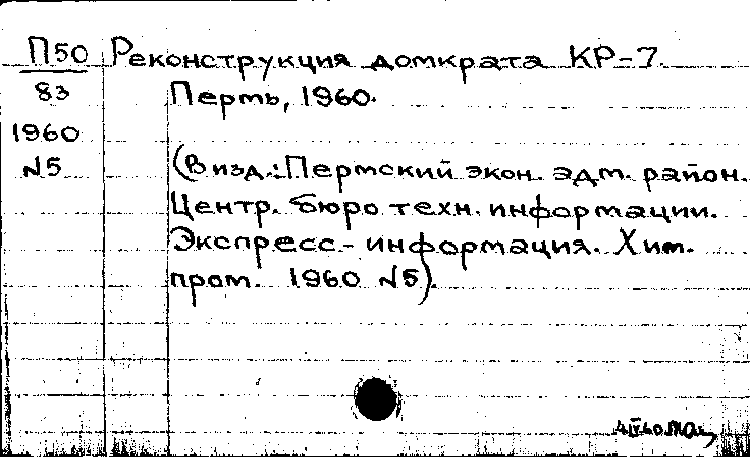 П50 Реконструкция домкрата КР-7.
83 Пермь, 1960.
1960
N5 (В изд.: Пермский экон. адм. район.
Центр. бюро техн. информации.
Экспресс-информация. Хим.
пром. 1960 N5).